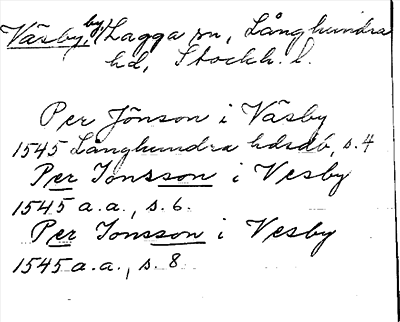 Väsby, by, Lagga sn, Långhundra
hd, Stockh. l.
Per Jönson i Väsby
1545 Långhundra hdsdb, s. 4
Per Jonsson i Vesby
1545 a. a., s. 6.
Per Jonsson i Vesby
1545 a. a., s. 8